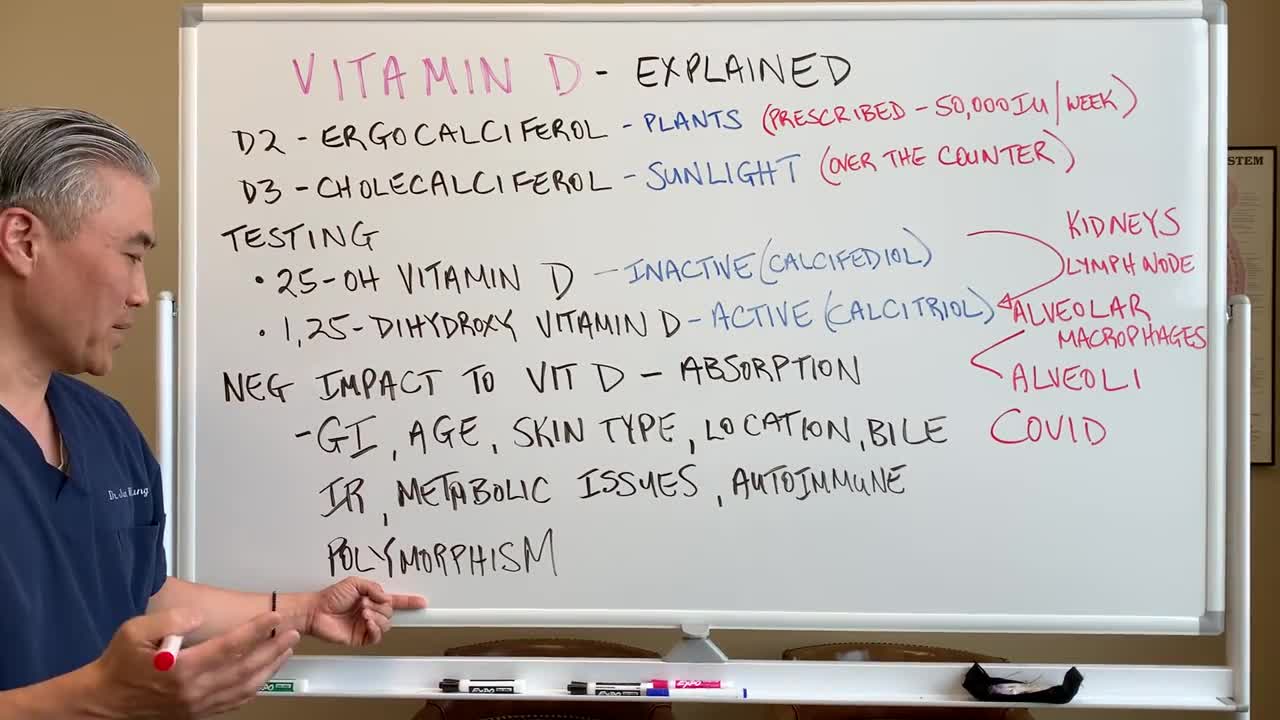 VITAMIN D - EXPLAINED
D2 - ERGOCALCIFEROL - PLANTS (PRESCRIBED - 50,000IU/WEEK)
D3 - CHOLECALCIFEROL - SUNLIGHT (OVER THE COUNTER)
TESTING
• 25-OH VITAMIN D - INACTIVE (CALCIFEDIOL)
• 1,25-DIHYDROXY VITAMIN D - ACTIVE (CALCITRIOL)
KIDNEYS
LYMPH NODE
ALVEOLAR
MACROPHAGES
ALVEOLI
COVID
NEG IMPACT TO VIT D - ABSORPTION
- GI, AGE, SKIN TYPE, LOCATION, BILE
IR, METABOLIC ISSUES, AUTOIMMUNE
POLYMORPHISM
STEM
Dr.
EXPO
EXPO
EXPO